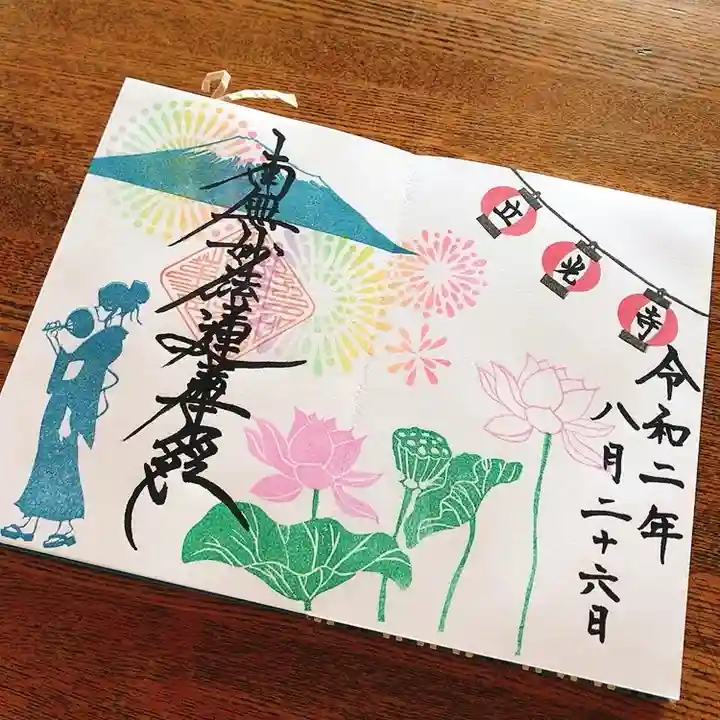 立光寺
令和二年
八月二十六日
南無妙法蓮華経